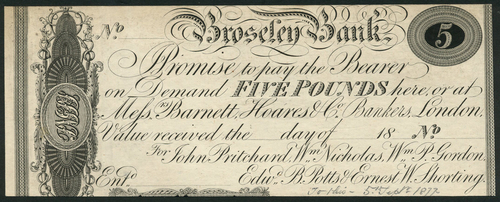 No
Broseley Bank
5
I Promise to pay the Bearer
on Demand FIVE POUNDS here, or at
Messrs. Barnett, Hoares & Co. Bankers, London.
Value received the day of 18 No
For John Pritchard, Wm. Nicholas, Wm. P. Gordon,
Entd. Edwd. B. Potts & Ernest W. Shorting.
5 Sept. 1877